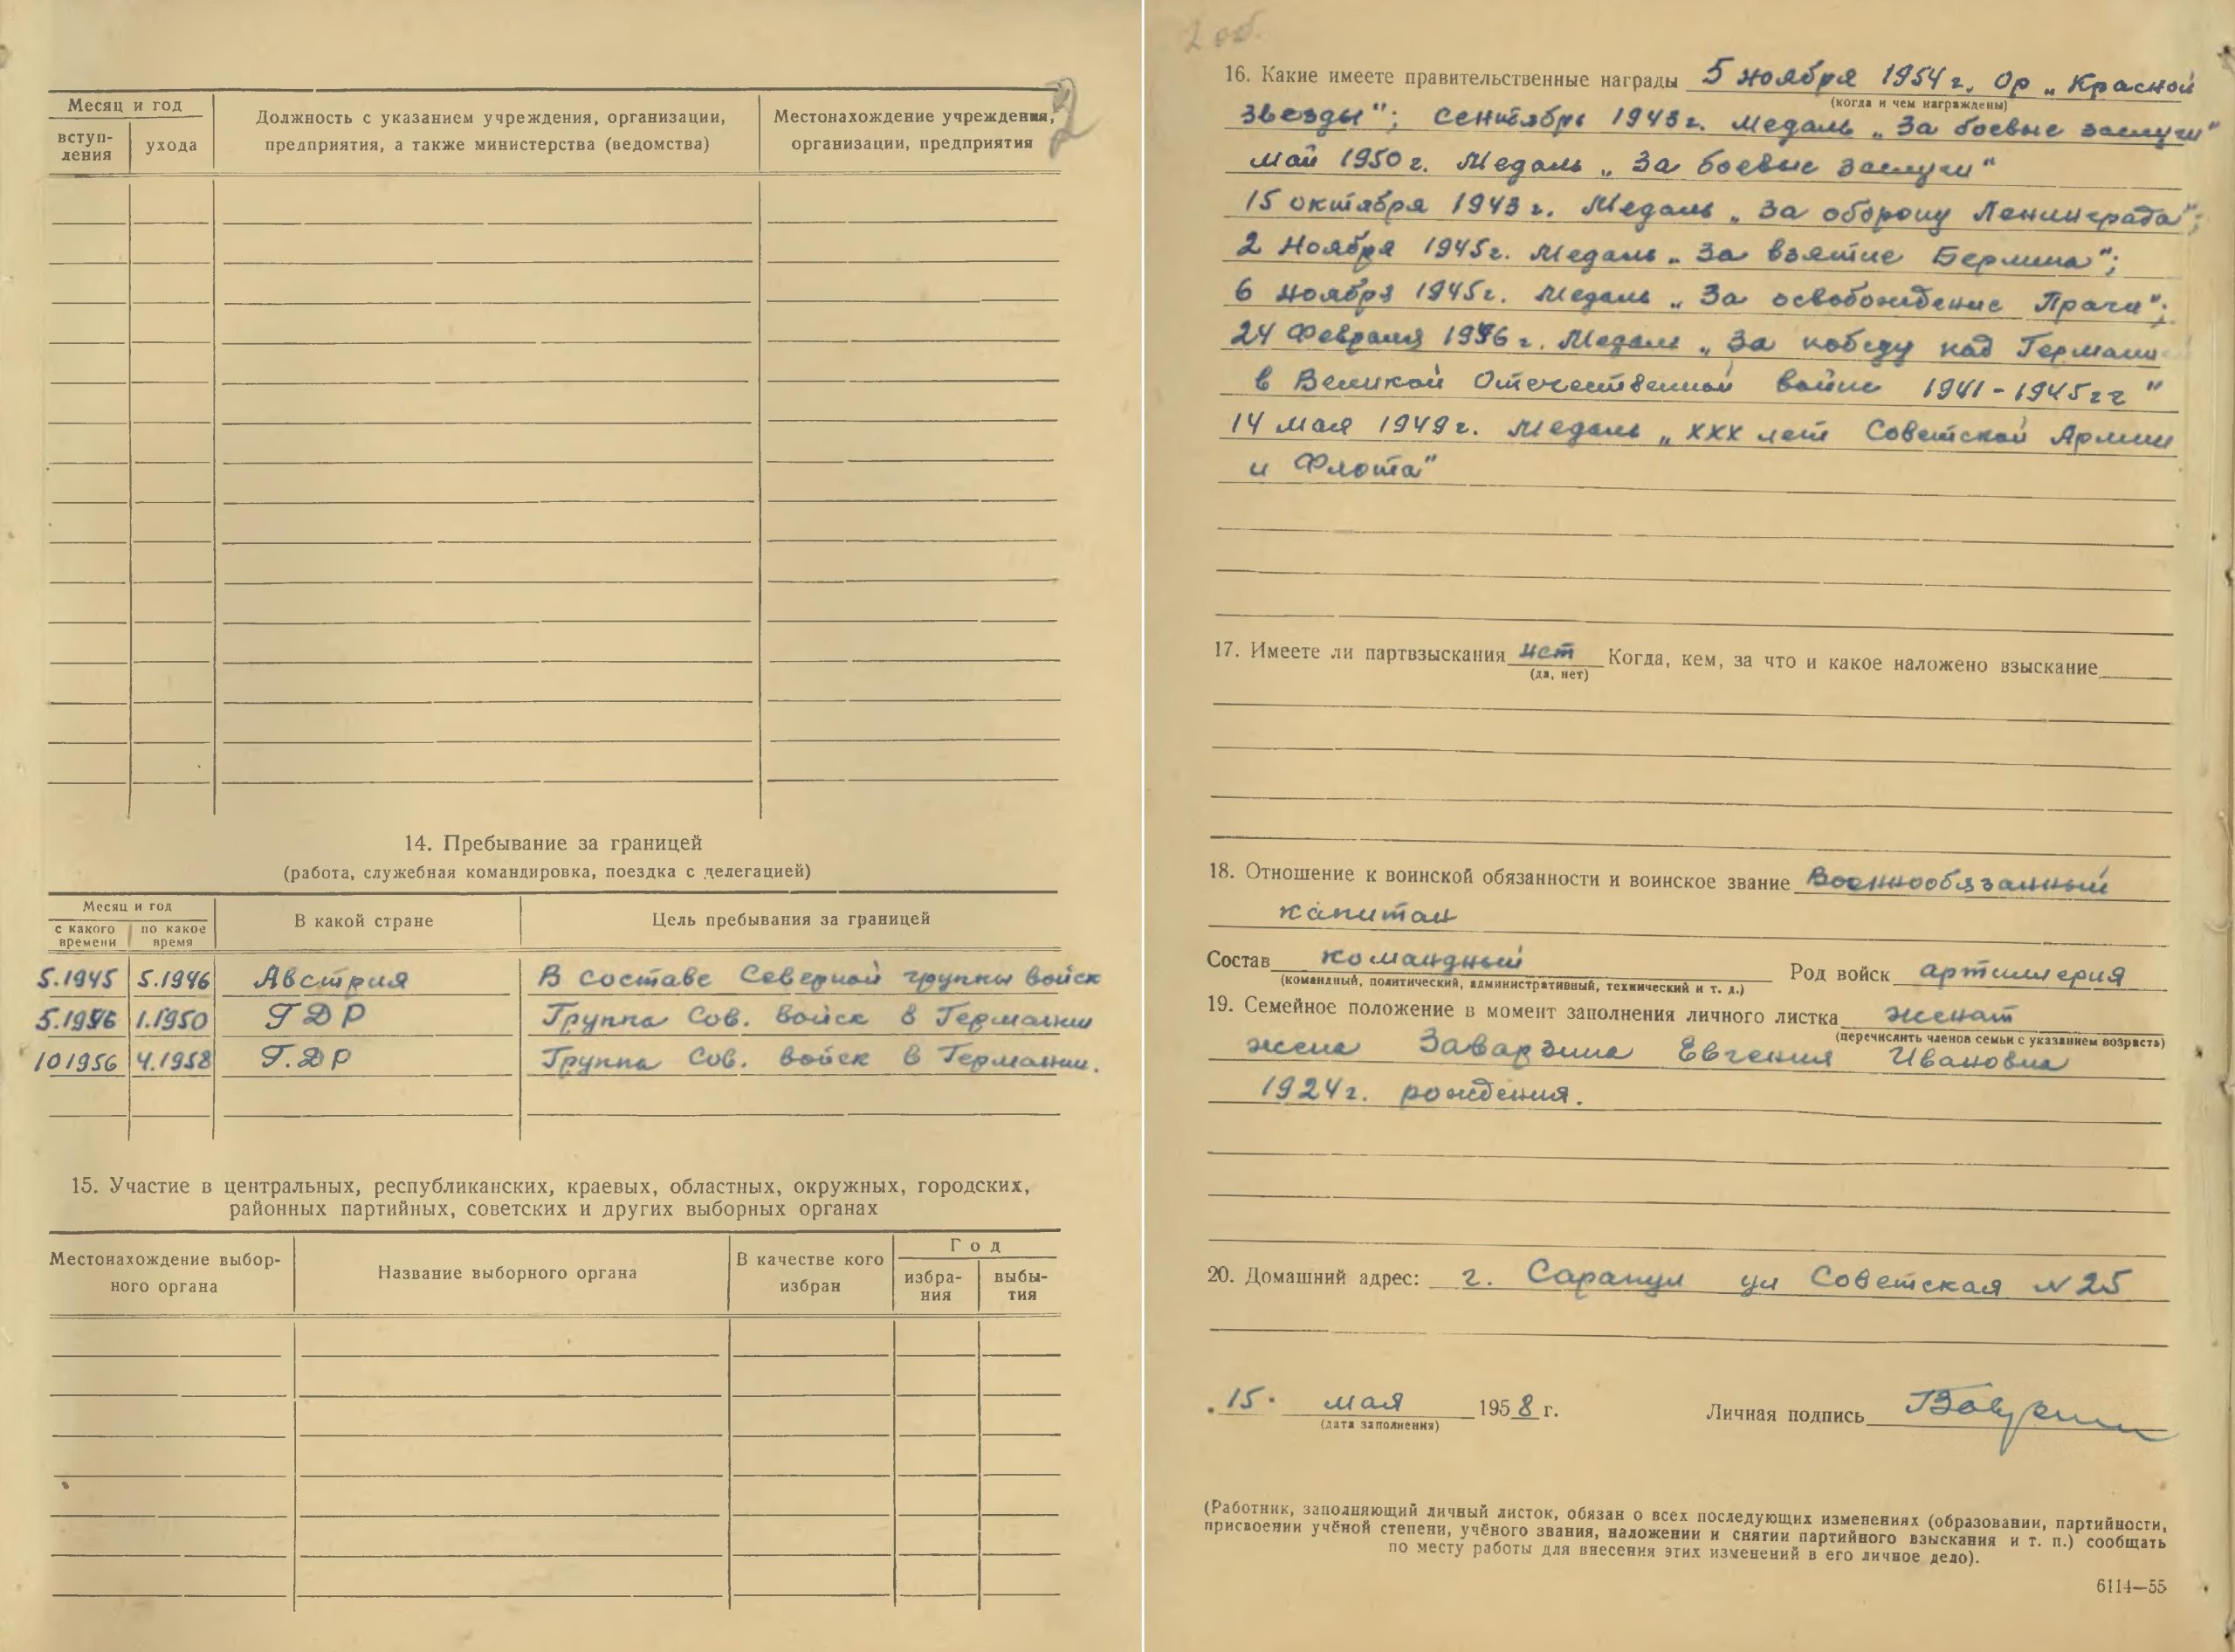 2
Месяц и год
вступ-
ления
ухода
Должность с указанием учреждения, организации,
предприятия, а также министерства (ведомства)
Местонахождение учреждения,
организации, предприятия
14. Пребывание за границей
(работа, служебная командировка, поездка с делегацией)
Месяц и год
с какого
времени
по какое
время
В какой стране
Цель пребывания за границей
5.1945 5.1946 Австрия В составе Северной группы войск
5.1946 1.1950 ГДР Группа Сов. войск в Германии
10 1956 4.1958 Г.ДР Группа Сов. войск в Германии.
15. Участие в центральных, республиканских, краевых, областных, окружных, городских,
районных партийных, советских и других выборных органах
Местонахождение выбор-
ного органа
Название выборного органа
В качестве кого
избран
Год
избра-
ния
выбы-
тия
2 об.
16. Какие имеете правительственные награды 5 ноября 1954 г. Ор „Красной
(когда и чем награждены)
звезды"; Сентябрь 1943 г. Медаль „За боевые заслуги"
Май 1950 г. Медаль „За боевые заслуги"
15 октября 1943 г. Медаль „За оборону Ленинграда";
2 Ноября 1945 г. Медаль „За взятие Берлина";
6 Ноября 1945 г. Медаль „За освобождение Праги";
24 Февраля 1946 г. Медаль „За победу над Германи
в Великой Отечественной войне 1941-1945 гг"
14 мая 1949 г. Медаль „XXX лет Советской Армии
и Флота"
17. Имеете ли партвзыскания нет Когда, кем, за что и какое наложено взыскание
(да, нет)
18. Отношение к воинской обязанности и воинское звание Военнообязанный
капитан
Состав командный Род войск артиллерия
(командный, политический, административный, технический и т. д.)
19. Семейное положение в момент заполнения личного листка женат
(перечислить членов семьи с указанием возраста)
жена Заварзина Евгения Ивановна
1924 г. рождения.
20. Домашний адрес: г. Сарапул ул Советская N 25
15. мая 1958 г. Личная подпись
(дата заполнения)
(Работник, заполняющий личный листок, обязан о всех последующих изменениях (образовании, партийности,
присвоении учёной степени, учёного звания, наложении и снятии партийного взыскания и т. п.) сообщать
по месту работы для внесения этих изменений в его личное дело).
6114—55